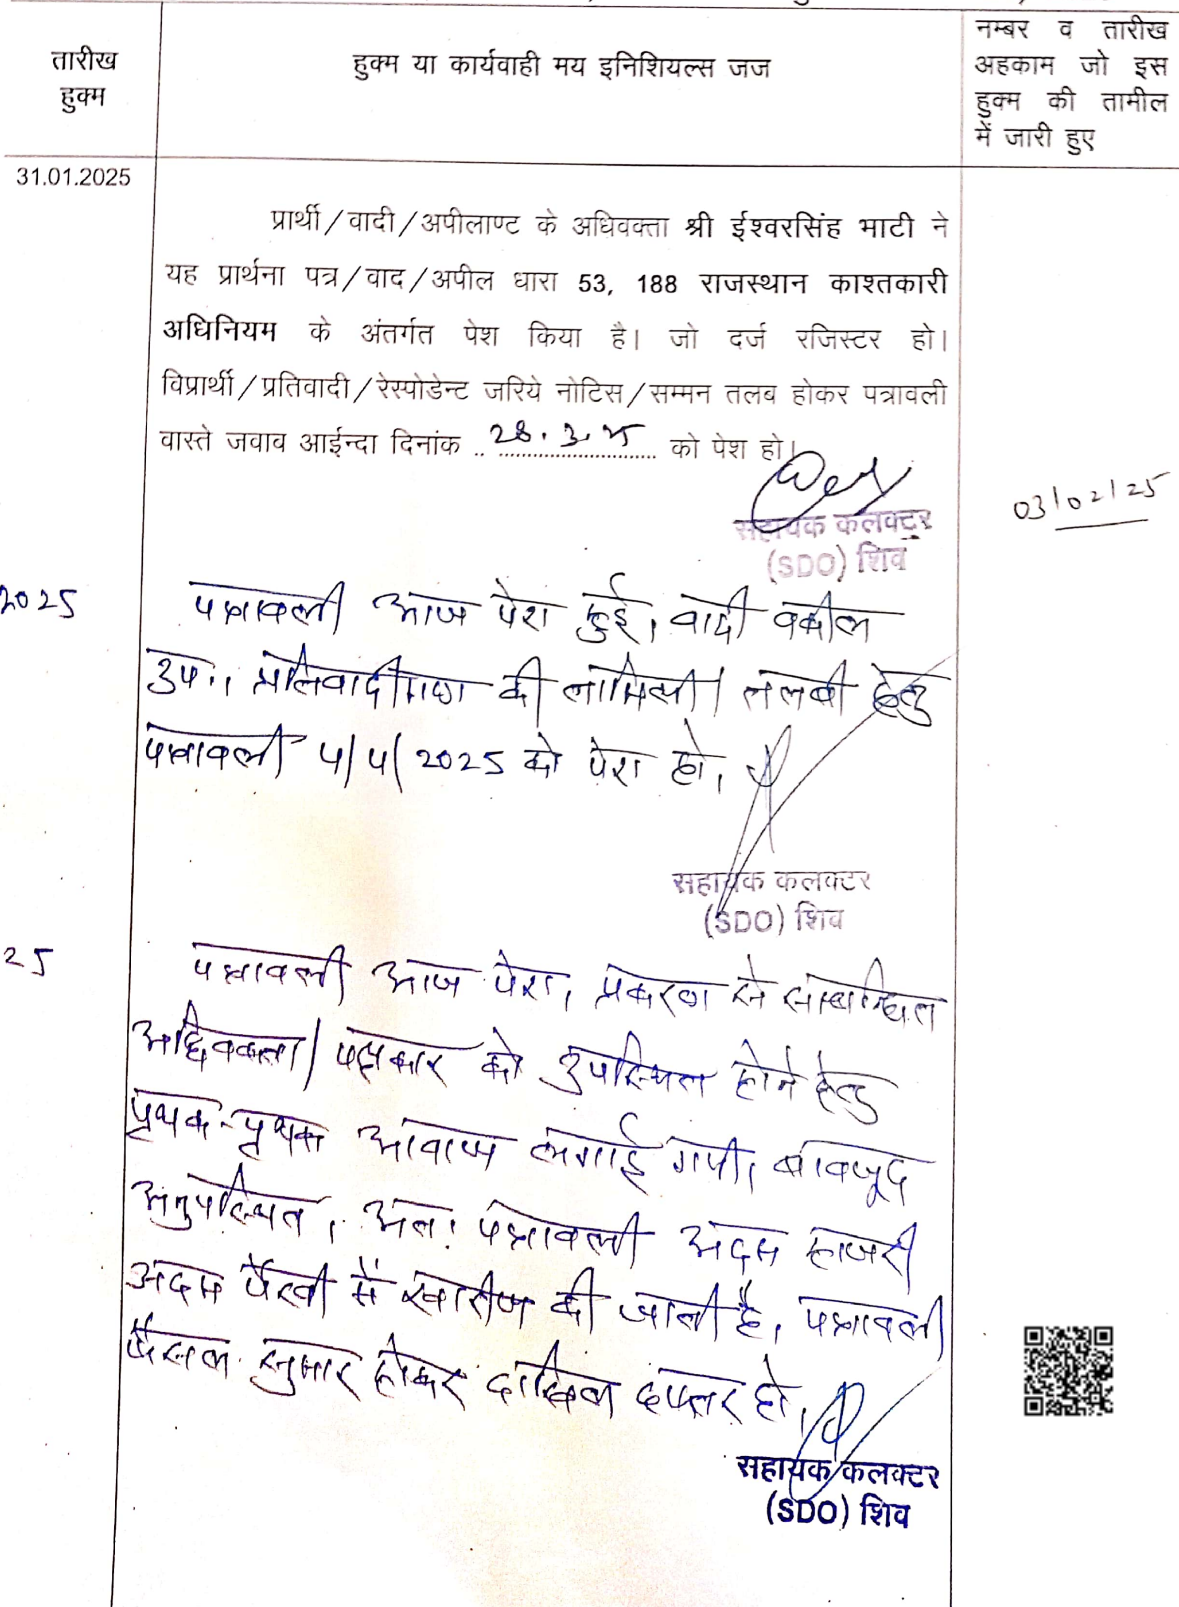 तारीख
हुक्म
हुक्म या कार्यवाही मय इनिशियल्स जज
नम्बर व तारीख
अहकाम जो इस
हुक्म की तामील
में जारी हुए
31.01.2025
प्रार्थी/वादी/अपीलाण्ट के अधिवक्ता श्री ईश्वरसिंह भाटी ने
यह प्रार्थना पत्र/वाद/अपील धारा 53, 188 राजस्थान काश्तकारी
अधिनियम के अंतर्गत पेश किया है। जो दर्ज रजिस्टर हो।
विप्रार्थी/प्रतिवादी/रेस्पोडेन्ट जरिये नोटिस/सम्मन तलब होकर पत्रावली
वास्ते जवाव आईन्दा दिनांक .. 28.3.25 को पेश हो।
सहायक कलक्टर
(SDO) शिव
03/02/25
2025
पत्रावली आज पेश हुई। वादी वकील
उप.। प्रतिवादीगण की तामिली/तलबी हेतु
पत्रावली 4/4/2025 को पेश हो।
सहायक कलक्टर
(SDO) शिव
25
पत्रावली आज पेश। प्रकरण से सम्बन्धित
अधिवक्ता/पक्षकार को उपस्थित होने हेतु
पृथक-पृथक आवाज लगाई गयी। बावजूद
अनुपस्थित। अतः पत्रावली अदम हाजरी
अदम पैरवी में खारीज की जाती है। पत्रावली
फैसल सुमार होकर दाखिल दफ्तर हो।
सहायक कलक्टर
(SDO) शिव